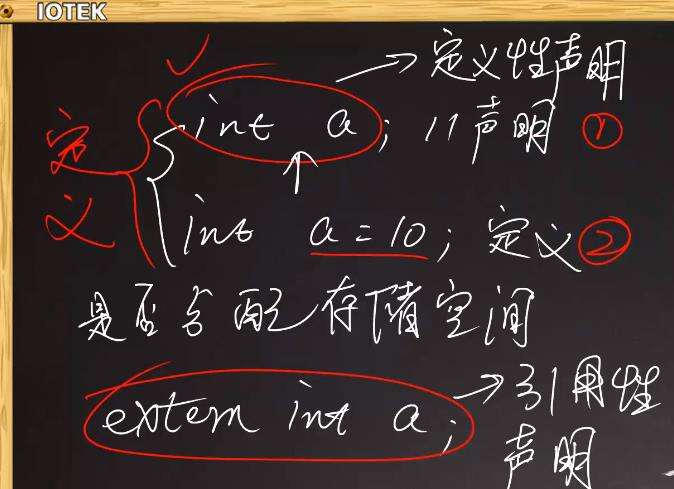 IOTEK
→定义性声明
定义
int a; //声明 ①
int a = 10; 定义 ②
是否分配存储空间
extern int a; →引用性
声明